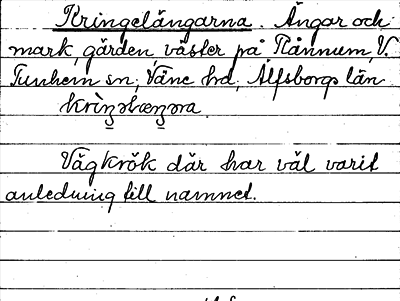 Kringelängarna. Ängar och
mark, gärden, väster på Rånnum, V.
Tunhem sn, Väne hd, Älfsborgs län

Vägkrök där har väl varit
anledning till namnet.